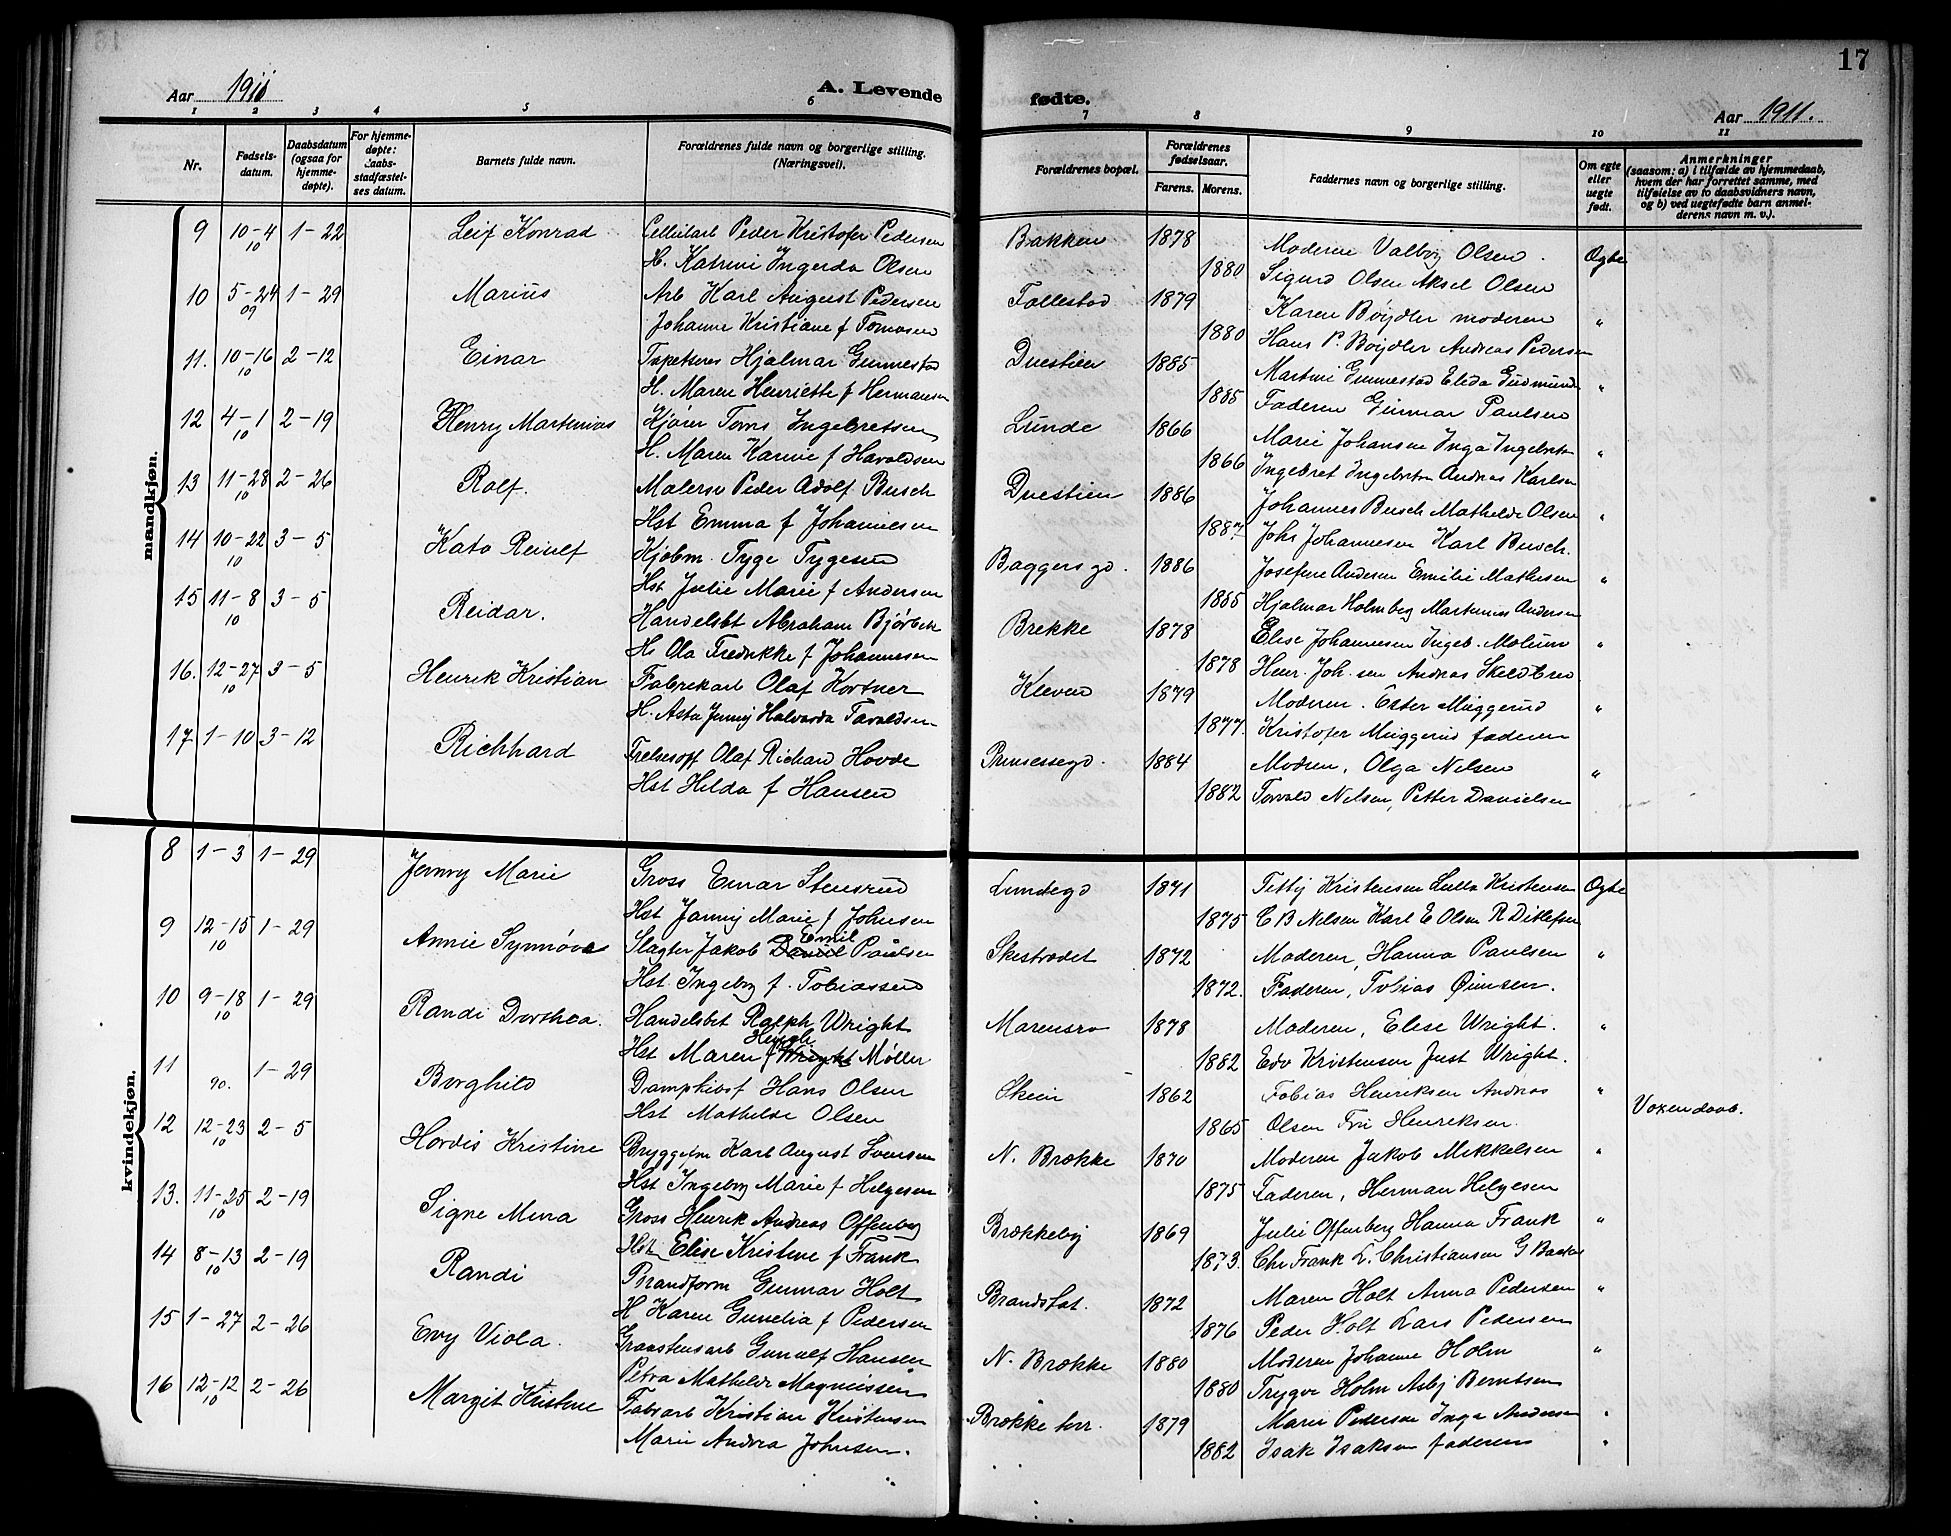 17
Aar 1911 A. Levende fødte. Aar 1911.
1 2 3 4 5 6 7 8 9 10 11
Nr. Fødsels-datum. Daabsdatum (ogsaa for hjemme-døpte). For hjemme-døpte: Daabs-stadfæstel-ses datum. Barnets fulde navn. Forældrenes fulde navn og borgerlige stilling. (Næringsvei). Forældrenes bopæl. Forældrenes fødselsaar. Farens. Morens. Faddernes navn og borgerlige stilling. Om egte eller uegte født. Anmerkninger (saasom: a) i tilfælde av hjemmedaab, hvem der har forrettet samme, med tilføielse av to daabsvidners navn, og b) ved uegtefødte barn anmel-derens navn m. v.).
mandkjøn.
9 10-4 10 1-22 Leif Konrad Peder Kristofer Pedersen Bakken 1878 Moderen Valborg Olsen. Egte
H. Katrine Ingerda Olsen 1880 Sigurd Olsen Aksel Olsen
10 5-24 09 1-29 Marius Arb Karl August Pedersen Follestad 1879 Karen Bøydler moderen "
Johanne Kristiane f Tomasen 1880 Hans P. Bøydler Andreas Pedersen
11. 10-16 10 2-12 Einar Tapetseres Hjalmar Gunnestad Duestien 1885 Martine Gunnestad Elida Gudmund "
H. Maren Henriette f Hermansen 1885 Faderen Gunnar Paulsen
12 4-1 10 2-19 Henry Martinius Kjører Toms Ingebretsen Lunde 1866 Marie Johansen Inga Ingebretsen "
H. Maren Karine f Havoldsen 1866 Ingebret Ingebretsen Andreas Karlsen
13 11-28 10 2-26 Rolf. Malersv Peder Adolf Busch Duestien 1886 Johannes Busch Mathilde Olsen "
Hst Emma f Johannesen 1887 Johs Johannesen Karl Busch.
14 10-22 10 3-5 Kato Reiulf Kjøbm. Tyge Tygesen Baggersgd. 1886 Josefine Andersen Emilie Mathisen "
Hst Julie Marie f Andersen 1885 Hjalmar Holmberg Martinius Andersen
15 11-8 10 3-5 Reidar. Handelsbt Abraham Bjørbæk Brekke 1878 Elise Johannesen Ingeb. Molum "
H. Ola Fredrikke f Johannesen 1878 Henr. Joh.sen Andreas Skeldbred
16. 12-27 10 3-5 Henrik Kristian Fabrikarb Olaf Kortner Kleven 1879 Moderen. Ester Muggerud "
H. Asta Jenny Halvarda Taraldsen 1877. Kristofer Muggerud faderen
17 1-10 3-12 Richhard Frelsesoff Olaf Richard Hovde Prinsessegd. 1884 Modren, Olga Nilsen "
Hst Hilda f Hansen 1882 Torvald Nilsen, Petter Danielsen
kvindekjøn.
8 1-3 1-29 Jenny Marie Gross Einar Stensrud Lundegd 1871 Kristensen Lulla Kristensen Egte
Hst Jenny Marie f Johnsen 1875 C B Nilsen Karl E Olsen R Ditlefsen
9 12-15 10 1-29 Annie Synnøve Slagter Jakob Daniel Emil Paulsen Skistredet 1872 Moderen, Hanna Paulsen "
Hst. Ingeborg f. Tobiassen 1872. Faderen, Tobias
10 9-18 10 1-29 Randi Dorthea. Handelsbet Ralph Wright Marensro 1878 Moderen, Elise Wright. "
Hst Maren f Wright Møller 1882 Edv Kristensen Just Wright.
11 90. 1-29 Borghild Dampkiosf Hans Olsen Skien 1862 Tobias Henriksen Andreas " Voxendaab.
Hst Mathilde Olsen 1865 Olsen Fru Henriksen.
12 12-23 10 2-5 Hordis Kristine Bryggeim Karl August Svensen N. Brække 1870 Moderen Jakob Mikkelsen "
Hst Ingeborg Marie f Helgesen 1875 Faderen, Herman Helgesen
13. 11-25 10 2-19 Signe Mina Gross Henrik Andreas Offenberg Brækkeby 1869 Julie Offenberg Hanna Frank "
Hst Elise Kristine f Frank 1873. Chr Frank L. Christiansen G Backe
14 8-13 10 2-19 Randi Brandform Gunnar Holt Brandstat. 1872 Maren Holt Anna Pedersen "
H Karen Gunelia f Pedersen 1876 Peder Holt Lars Pedersen
15 1-27 2-26 Evy Viola. Graastensarb Gunulf Hansen N. Brække 1880 Moderen Johanne Holm "
Petra Mathilde Magnussen 1880 Trygve Holm Asbj Berntsen
16 12-12 10 2-26 Margit Kristine Fabrarb Kristian Kristensen Brække terr. 1879 Marie Pedersen Inga Andersen "
Marie Andrea Johnsen. 1882 Isak Isaksen faderen "